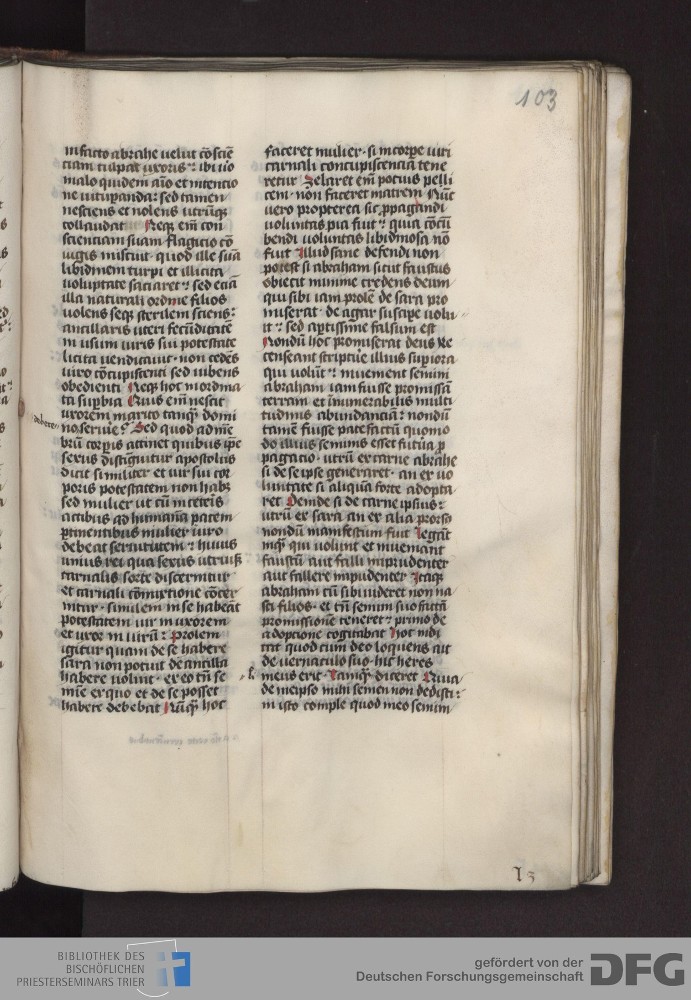 103
in facto abrahe uelut cōsciē
tiam culpat uxoris ibi uō
malo quidem aīo et intentio
ne uituperanda: sed tamen
nesciens et nolens utrūqꝫ
collaudat Neqꝫ em̄ con
scientiam suam flagitio cō
iugis miscuit quod ille suā
libidinem turpi et illicita
uoluptate saciaret: sed eciā
illa naturali ordine filios
uolens seqꝫ sterilem sciens:
ancillaris uteri fecūditatē
in usum iuris sui potestate
licita uendicauit· non cedēs
uiro cōcupiscenti sed iubens
obedienti Neqꝫ hoc inordina
ta suꝑbia Quis em̄ nescit
uxorem marito tanqꝫ domi
debere
no seruire? Sed quod ad mē
brū corꝑis attinet quibus ip̄e
sexus distinguitur apostolus
dicit similiter et uir sui cor
poris potestatem non habꝫ
sed mulier ut cū in ceteris
actibus ad humanā pacem
ꝑtinentibus mulier uiro
debeat seruitutem: huius
unius rei qua sexus utriusqꝫ
carnalis sorte discernitur
et carnali cōmixtione cōcer
nitur· similem in se habeāt
potestatem uir in uxorem
et uxor in uirū: Prolem
igitur quam de se habere
sara non potuit de ancilla
habere uoluit· ex eo tn̄ se
mīe ex quo et de se posset
habere debebat Nūqꝫ hoc
faceret mulier· si in corpe uiri
carnali concupiscenciā tene
retur Zelaret em̄ potius pelli
cem· non faceret matrem Nūc
uero propterea sic ꝓpagandi
uoluntas pia fuit: quia cōcū
bendi uoluntas libidinosa nō
fuit Illud sane defendi non
potest si abraham sicut faustus
obiecit minime credens deum
qui sibi iam prolē de sara pro
miserat· de agar suscipe uolu
it: sed aptissime falsum est
Nondū hoc promiserat deus Re
censeant scripture illius supiora
qui uolūt: inuenient semini
abraham iam fuisse promissā
terram et innumerabilis multi
tudinis abundanciā: nondū
tamē fuisse patefactū quomo
do illius seminis esset futura ꝓ
pagatio· utrū ex carne abrahe
si de se ipse generaret· an ex uo
luntate si aliquā forte adopta
ret Deinde si de carne ipsius:
utrū ex sara an ex alia prorso
nondū manifestum fuit Legāt
inqꝫ qui uolunt et inueniant
faustū aut falli imprudenter
aut fallere impudenter Itaqꝫ
abraham cū sibi uideret non na
sci filios· et tn̄ semini suo factā
promissionē teneret: primo de
adoptione cogitabat Hoc indi
cat quod cum deo loquens ait
de uernaculo suo· hic heres
meus erit· Tamqꝫ diceret Quia
de meipso mihi semen non dedisti:
in isto comple quod meo semini
l3
BIBLIOTHEK DES
BISCHÖFLICHEN
PRIESTERSEMINARS TRIER
gefördert von der
Deutschen Forschungsgemeinschaft
DFG